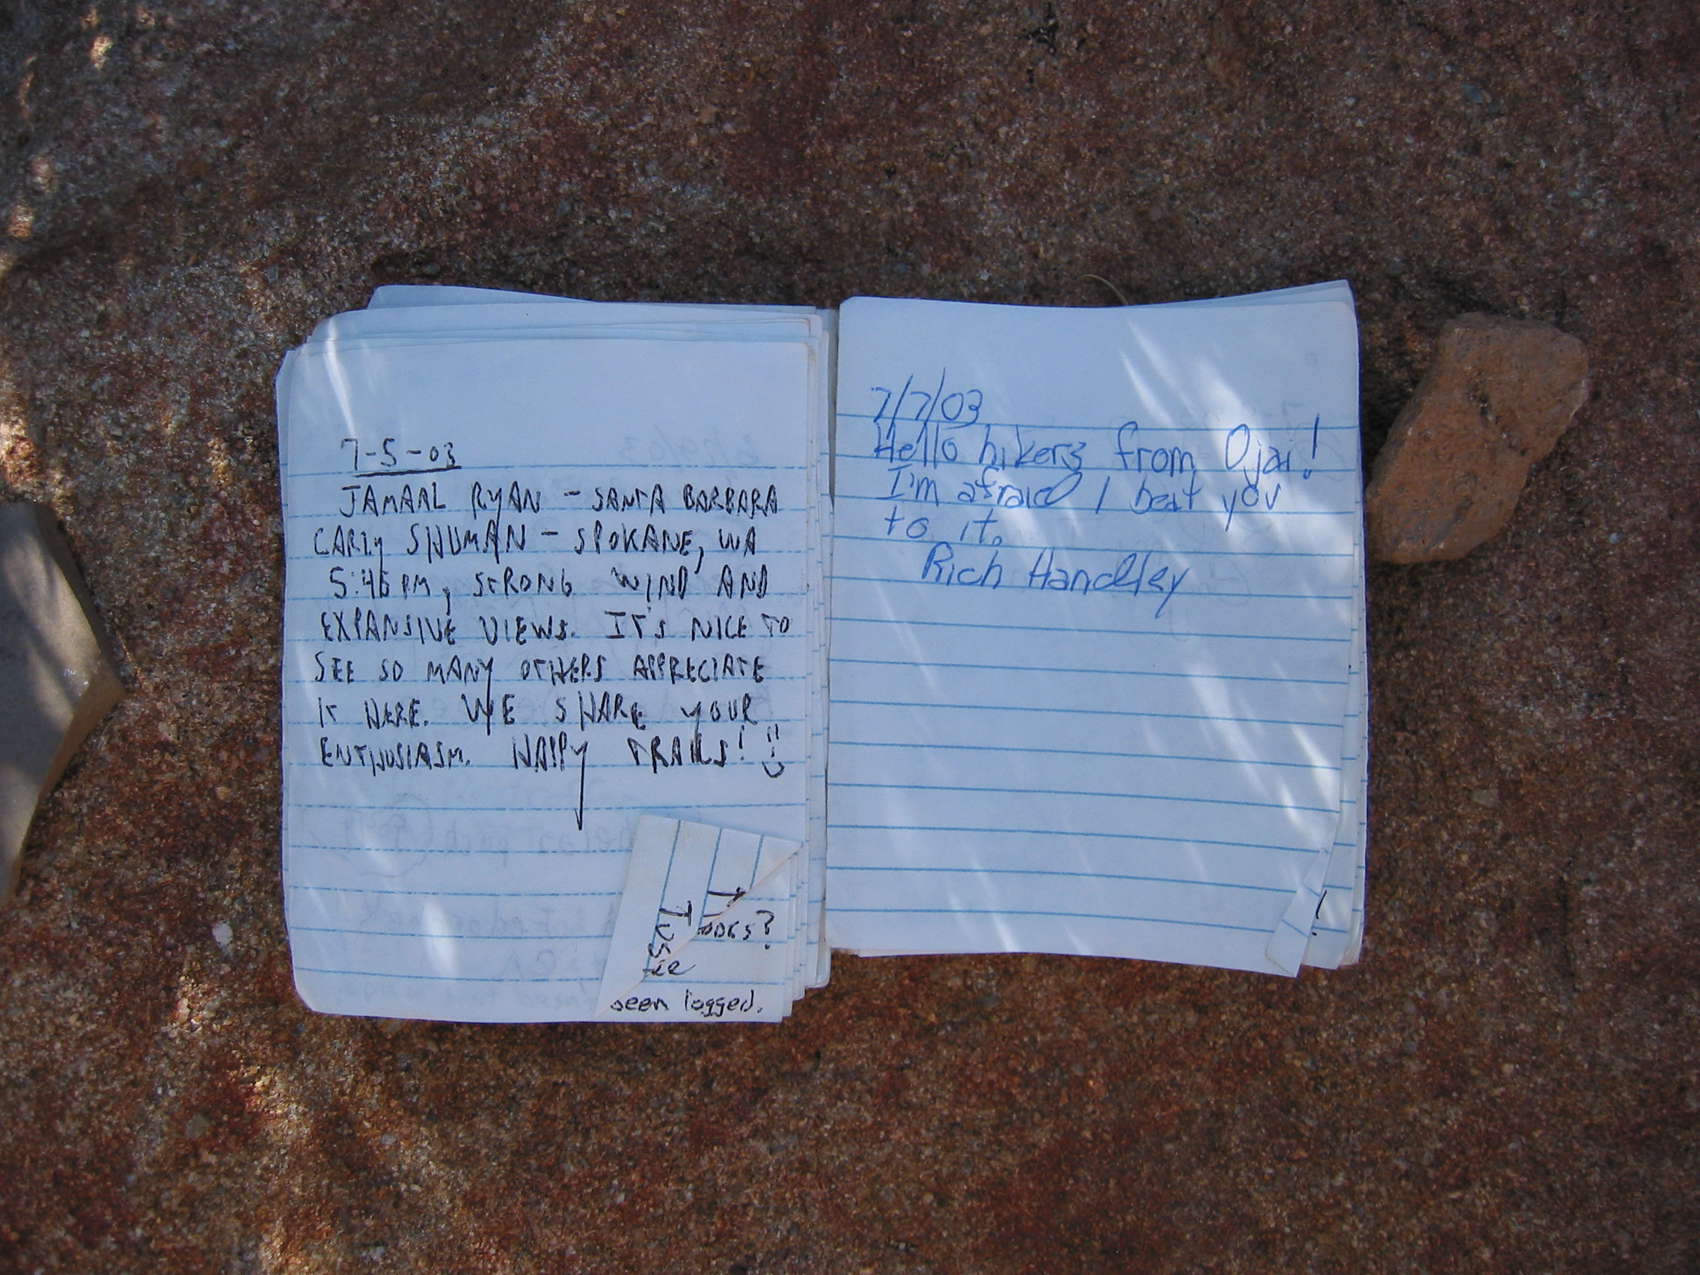 7-5-03
JAMAAL RYAN - SANTA BARBARA
CARLY SHUMAN - SPOKANE, WA
5:46 PM, STRONG WIND AND
EXPANSIVE VIEWS. IT'S NICE TO
SEE SO MANY OTHERS APPRECIATE
IT HERE. WE SHARE YOUR
ENTHUSIASM. HAPPY TRAILS! :)
been logged.
7/7/03
Hello hikers from Ojai!
I'm afraid I beat you
to it.
Rich Handley